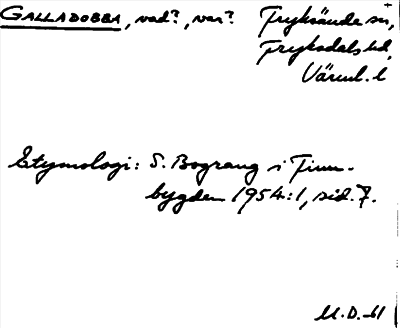 GALLADOBBA, vad?, var? Fryksände sn,
Fryksdals hd,
Värml. l
Etymologi: S. Bograng i Finn-
bygden 1954:1, sid. 7.
M.D.-61